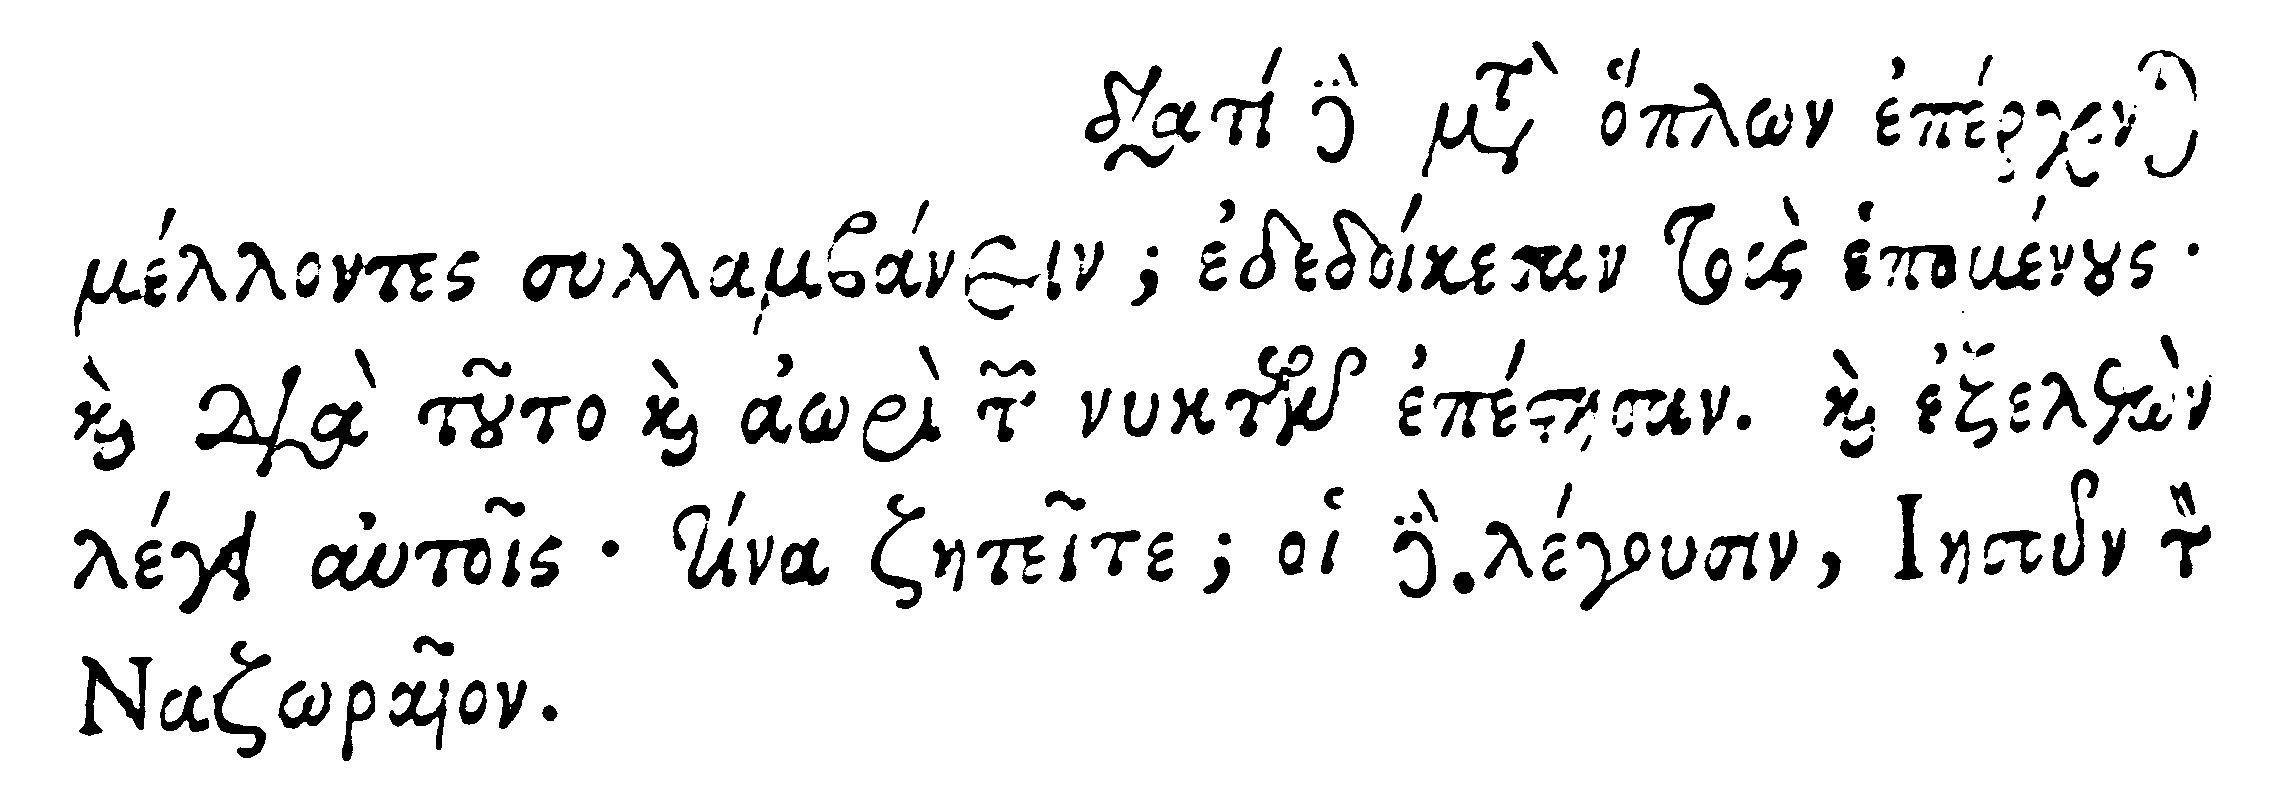 διατί δὲ μετὰ ὅπλων ἐπέρχονται
μέλλοντες συλλαμβάνειν; ἐδεδοίκεισαν τοὺς ἑπομένους·
καὶ διὰ τοῦτο καὶ ἀωρὶ τῶν νυκτῶν ἐπέστησαν. καὶ ἐξελθὼν
λέγει αὐτοῖς· τίνα ζητεῖτε; οἱ δὲ. λέγουσιν, Ιησοῦν τὸν
Ναζωραῖον.